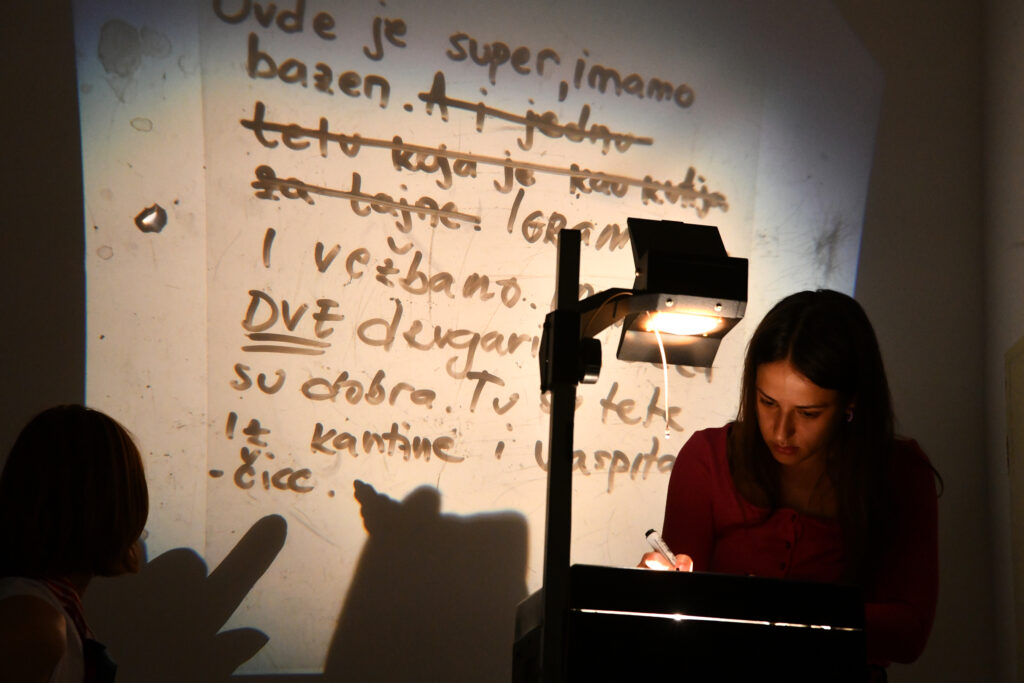 Ovde je super, imamo
bazen. A i jednu
tetu koja je kao kutija
za tajne. IGRAM
I vežbamo.
DVE drugari
su dobra. Tu su tete
Iz kantine i vaspita
-čice.